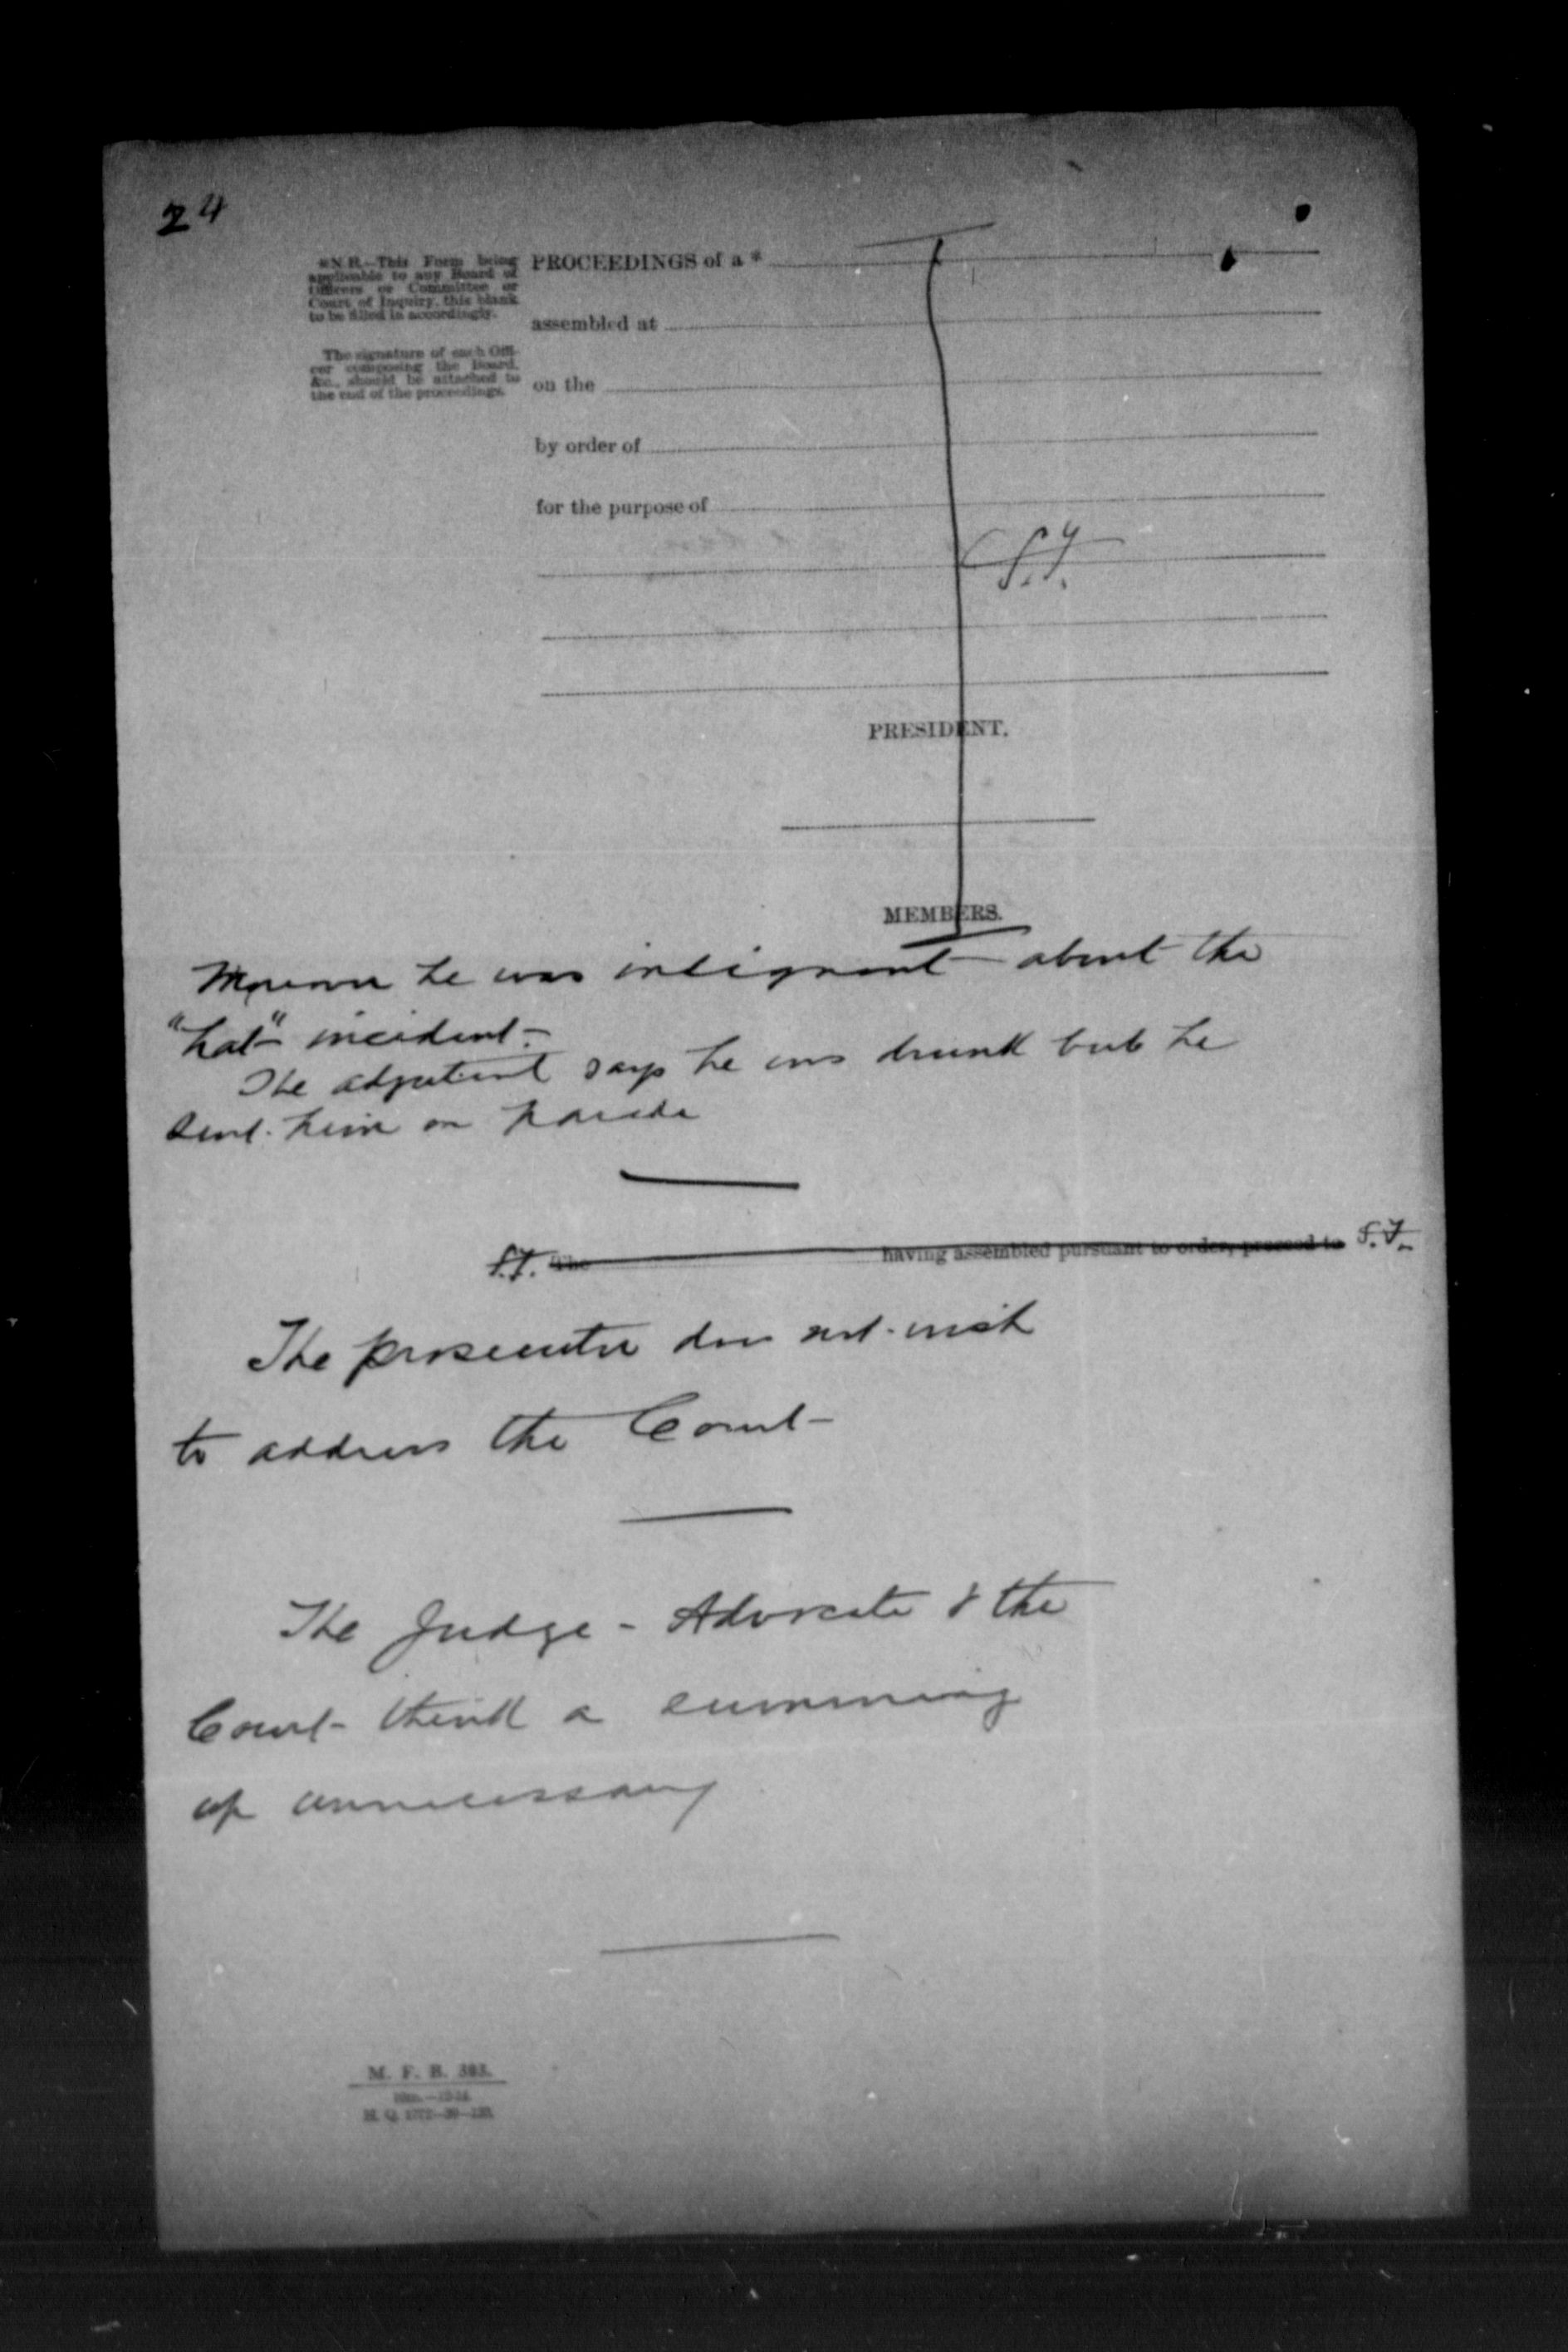 24
*N.B.—This Form being
applicable to any Board of
Officers or Committee or
Court of Inquiry, this blank
to be filled in accordingly.
The signature of each Offi-
cer composing the Board,
&c., should be attached to
the end of the proceedings.
PROCEEDINGS of a *
assembled at
on the
by order of
for the purpose of
PRESIDENT.
MEMBERS.
Moreover he was indignant about the
"hat" incident.
The adjutant says he was drunk but he
sent him on parade
S.T. The having assembled pursuant to order, proceed to S.T.
The prosecutor does not wish
to address the Court
The Judge - Advocate & the
Court think a summing
up unnecessary
M. F. B. 303.
H. Q. 1772-39-